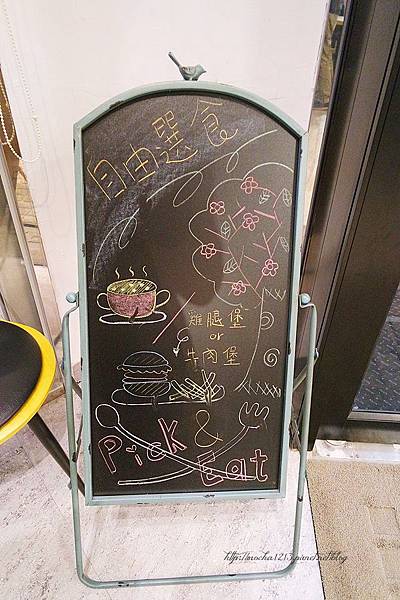 自由選食
雞腿堡
or
牛肉堡
Pick &
Eat
http://mocha1213.pixnet.net/blog